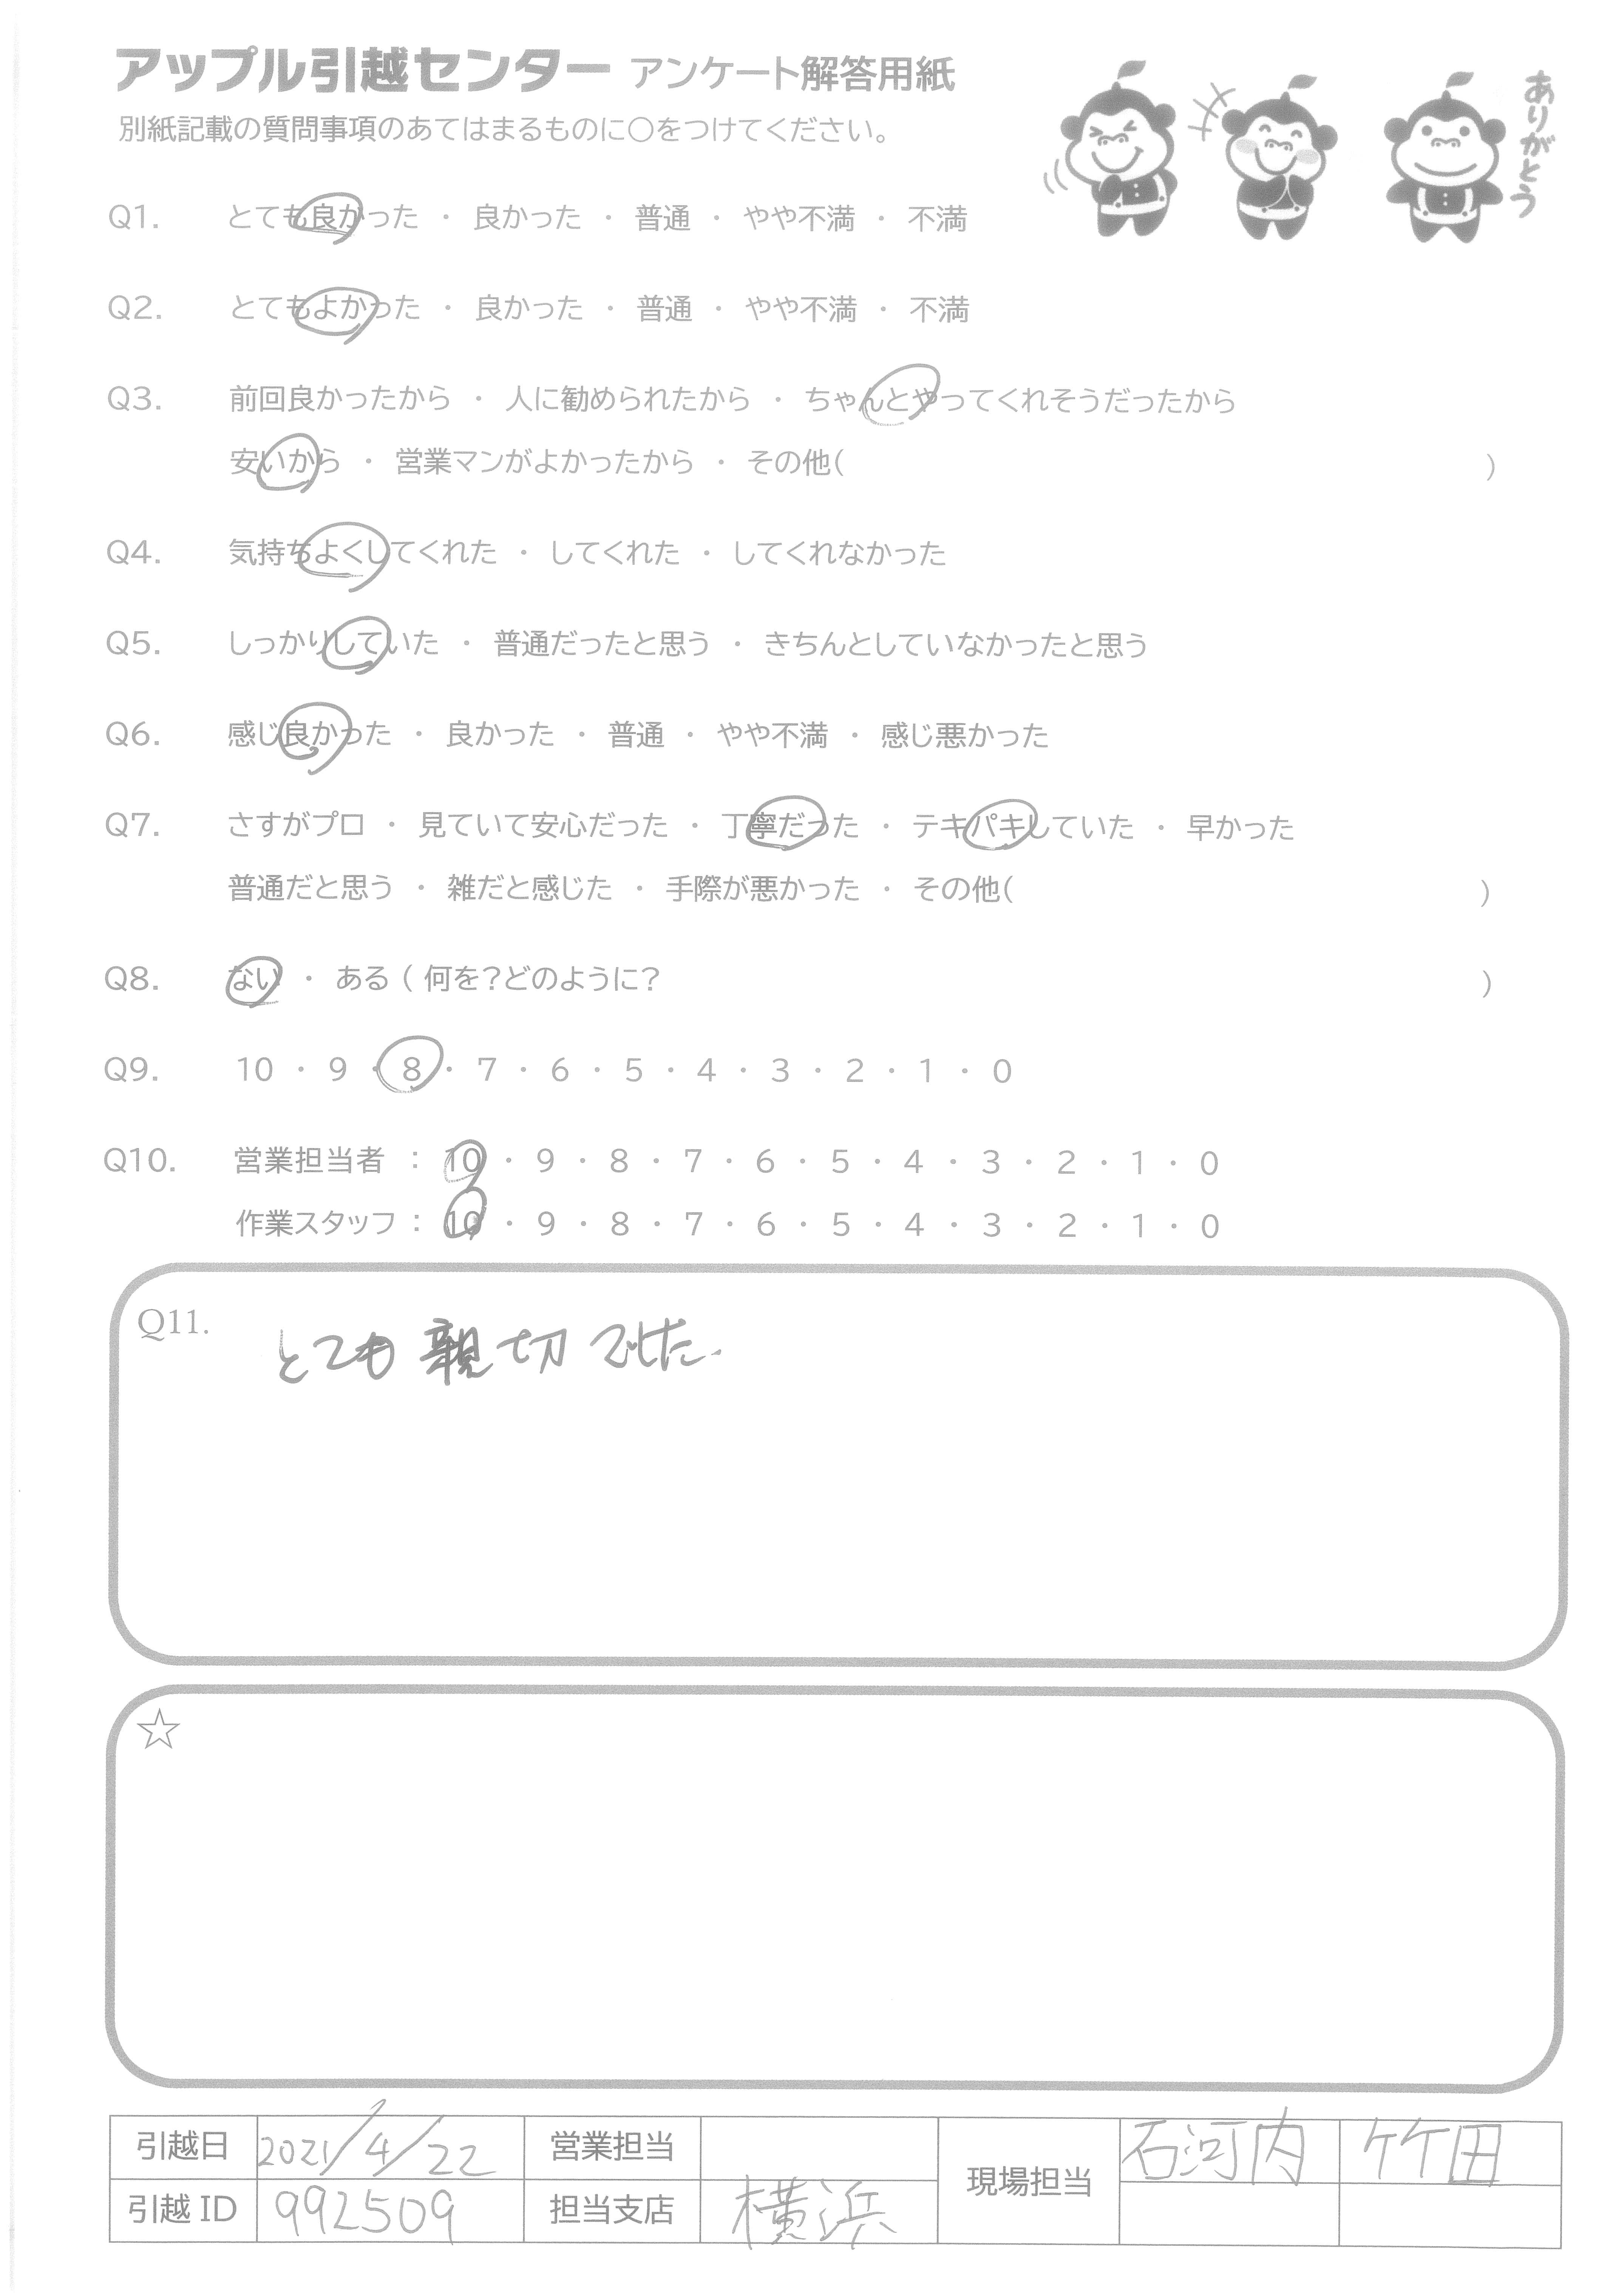 アップル引越センター アンケート解答用紙
別紙記載の質問事項のあてはまるものに○をつけてください。
ありがとう
Q1. とても良かった ・ 良かった ・ 普通 ・ やや不満 ・ 不満
Q2. とてもよかった ・ 良かった ・ 普通 ・ やや不満 ・ 不満
Q3. 前回良かったから ・ 人に勧められたから ・ ちゃんとやってくれそうだったから
安いから ・ 営業マンがよかったから ・ その他( )
Q4. 気持ちよくしてくれた ・ してくれた ・ してくれなかった
Q5. しっかりしていた ・ 普通だったと思う ・ きちんとしていなかったと思う
Q6. 感じ良かった ・ 良かった ・ 普通 ・ やや不満 ・ 感じ悪かった
Q7. さすがプロ ・ 見ていて安心だった ・ 丁寧だった ・ テキパキしていた ・ 早かった
普通だと思う ・ 雑だと感じた ・ 手際が悪かった ・ その他( )
Q8. ない ・ ある ( 何を?どのように? )
Q9. 10 ・ 9 ・ 8 ・ 7 ・ 6 ・ 5 ・ 4 ・ 3 ・ 2 ・ 1 ・ 0
Q10. 営業担当者 : 10 ・ 9 ・ 8 ・ 7 ・ 6 ・ 5 ・ 4 ・ 3 ・ 2 ・ 1 ・ 0
作業スタッフ : 10 ・ 9 ・ 8 ・ 7 ・ 6 ・ 5 ・ 4 ・ 3 ・ 2 ・ 1 ・ 0
Q11. とても親切でした.
☆
引越日 2021/4/22 営業担当 現場担当 石河内 竹田
引越ID 992509 担当支店 横浜